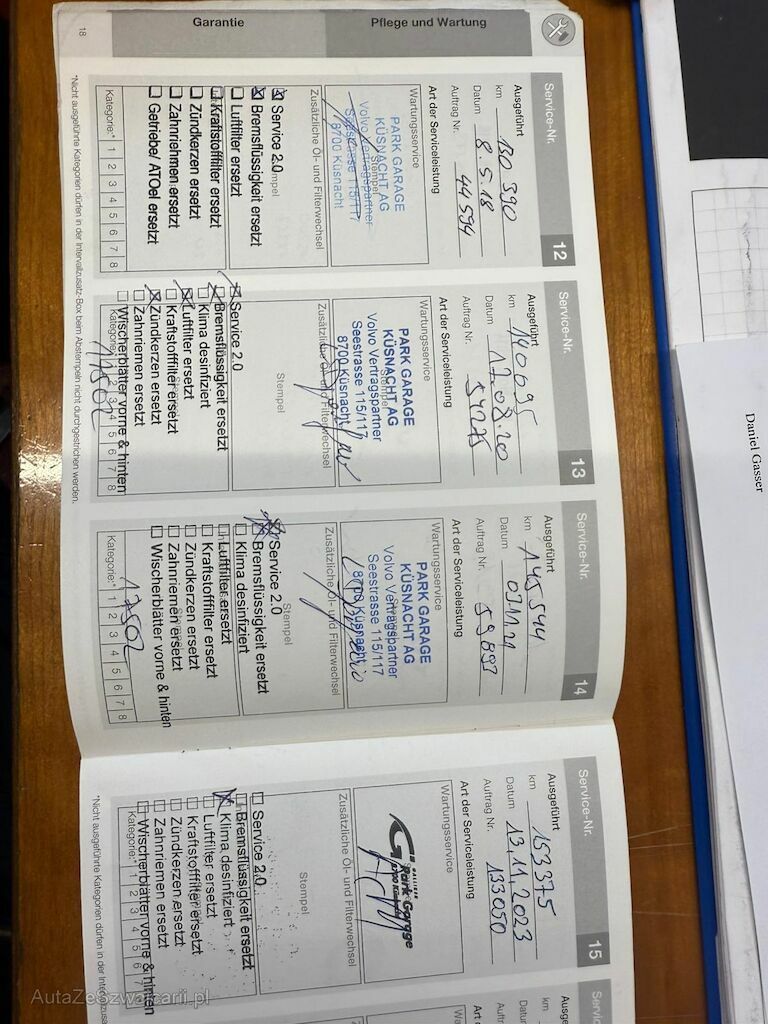 Garantie
Pflege und Wartung
18
Service-Nr. 12
Ausgeführt
km 130 390
Datum 8.5.18
Auftrag Nr. 44594
Art der Serviceleistung
Wartungsservice
PARK GARAGE
KÜSNACHT AG
Stempel
Volvo Vertragspartner
Seestrasse 115/117
8700 Küsnacht
Zusätzliche Öl- und Filterwechsel
Stempel
Service 2.0
Bremsflüssigkeit ersetzt
Luftfilter ersetzt
Kraftstofffilter ersetzt
Zündkerzen ersetzt
Zahnriehmen ersetzt
Getriebe/ ATOel ersetzt
Kategorie:* 1 2 3 4 5 6 7 8
Service-Nr. 13
Ausgeführt
km 140095
Datum 17.08.20
Auftrag Nr. 54275
Art der Serviceleistung
Wartungsservice
PARK GARAGE
KÜSNACHT AG
Stempel
Volvo Vertragspartner
Seestrasse 115/117
8700 Küsnacht
Zusätzliche Öl- und Filterwechsel
Stempel
Service 2.0
Bremsflüssigkeit ersetzt
Klima desinfiziert
Luftfilter ersetzt
Kraftstofffilter ersetzt
Zündkerzen ersetzt
Zahnriemen ersetzt
Wischerblätter vorne & hinten
Kategorie:* 1 2 3 4 5 6 7 8
Service-Nr. 14
Ausgeführt
km 145544
Datum 01.11.21
Auftrag Nr. 59893
Art der Serviceleistung
Wartungsservice
PARK GARAGE
KÜSNACHT AG
Stempel
Volvo Vertragspartner
Seestrasse 115/117
8700 Küsnacht
Zusätzliche Öl- und Filterwechsel
Stempel
Service 2.0
Bremsflüssigkeit ersetzt
Klima desinfiziert
Luftfilter ersetzt
Kraftstofffilter ersetzt
Zündkerzen ersetzt
Zahnriemen ersetzt
Wischerblätter vorne & hinten
Kategorie:* 1 2 3 4 5 6 7 8
*Nicht ausgeführte Kategorien dürfen in der Intervallzusatz-Box beim Abstempeln nicht durchgestrichen werden.
Service-Nr. 15
Ausgeführt
km 153375
Datum 13.11.2023
Auftrag Nr. 133050
Art der Serviceleistung
Wartungsservice
Park Garage
Zusätzliche Öl- und Filterwechsel
Stempel
Service 2.0
Bremsflüssigkeit ersetzt
Klima desinfiziert
Luftfilter ersetzt
Kraftstofffilter ersetzt
Zündkerzen ersetzt
Zahnriemen ersetzt
Wischerblätter vorne & hinten
Kategorie:* 1 2 3 4 5 6 7
*Nicht ausgeführte Kategorien dürfen in der Intervallzusa
Servic
Ausge
km
Datum
Auftra
Art de
Wartu
Zusät
Daniel Gasser
AutaZeSzwajcarii.pl